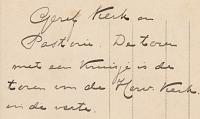 Geref Kerk en
Pastorie. De toren
met een Kruisje is de
toren van de Herv. Kerk.
in de verte.